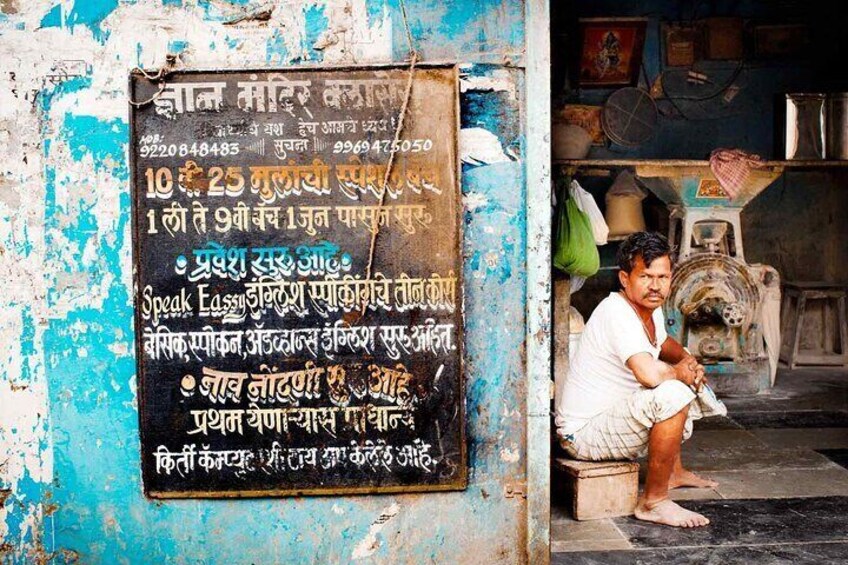 ज्ञान मंदिर क्लासेस
हेच आमचे ध्येय!
MOB:
9220848483 सुचना 9969475050
10 वी 25 मुलांची स्पेशल बॅच
1 ली ते 9वी बॅच 1जुन पासुन सुरु
प्रवेश सुरु आहे
Speak Eassy इंग्लिश स्पीकींगचे तीन कोर्स
बेसिक, स्पोकन, ॲडव्हान्स इंग्लिश सुरु आहेत.
नाव नोंदणी सुरु आहे
प्रथम येणाऱ्यास प्राधान्य
किर्ती कॅम्प्युटर्सशी टाय अप केलेले आहे.